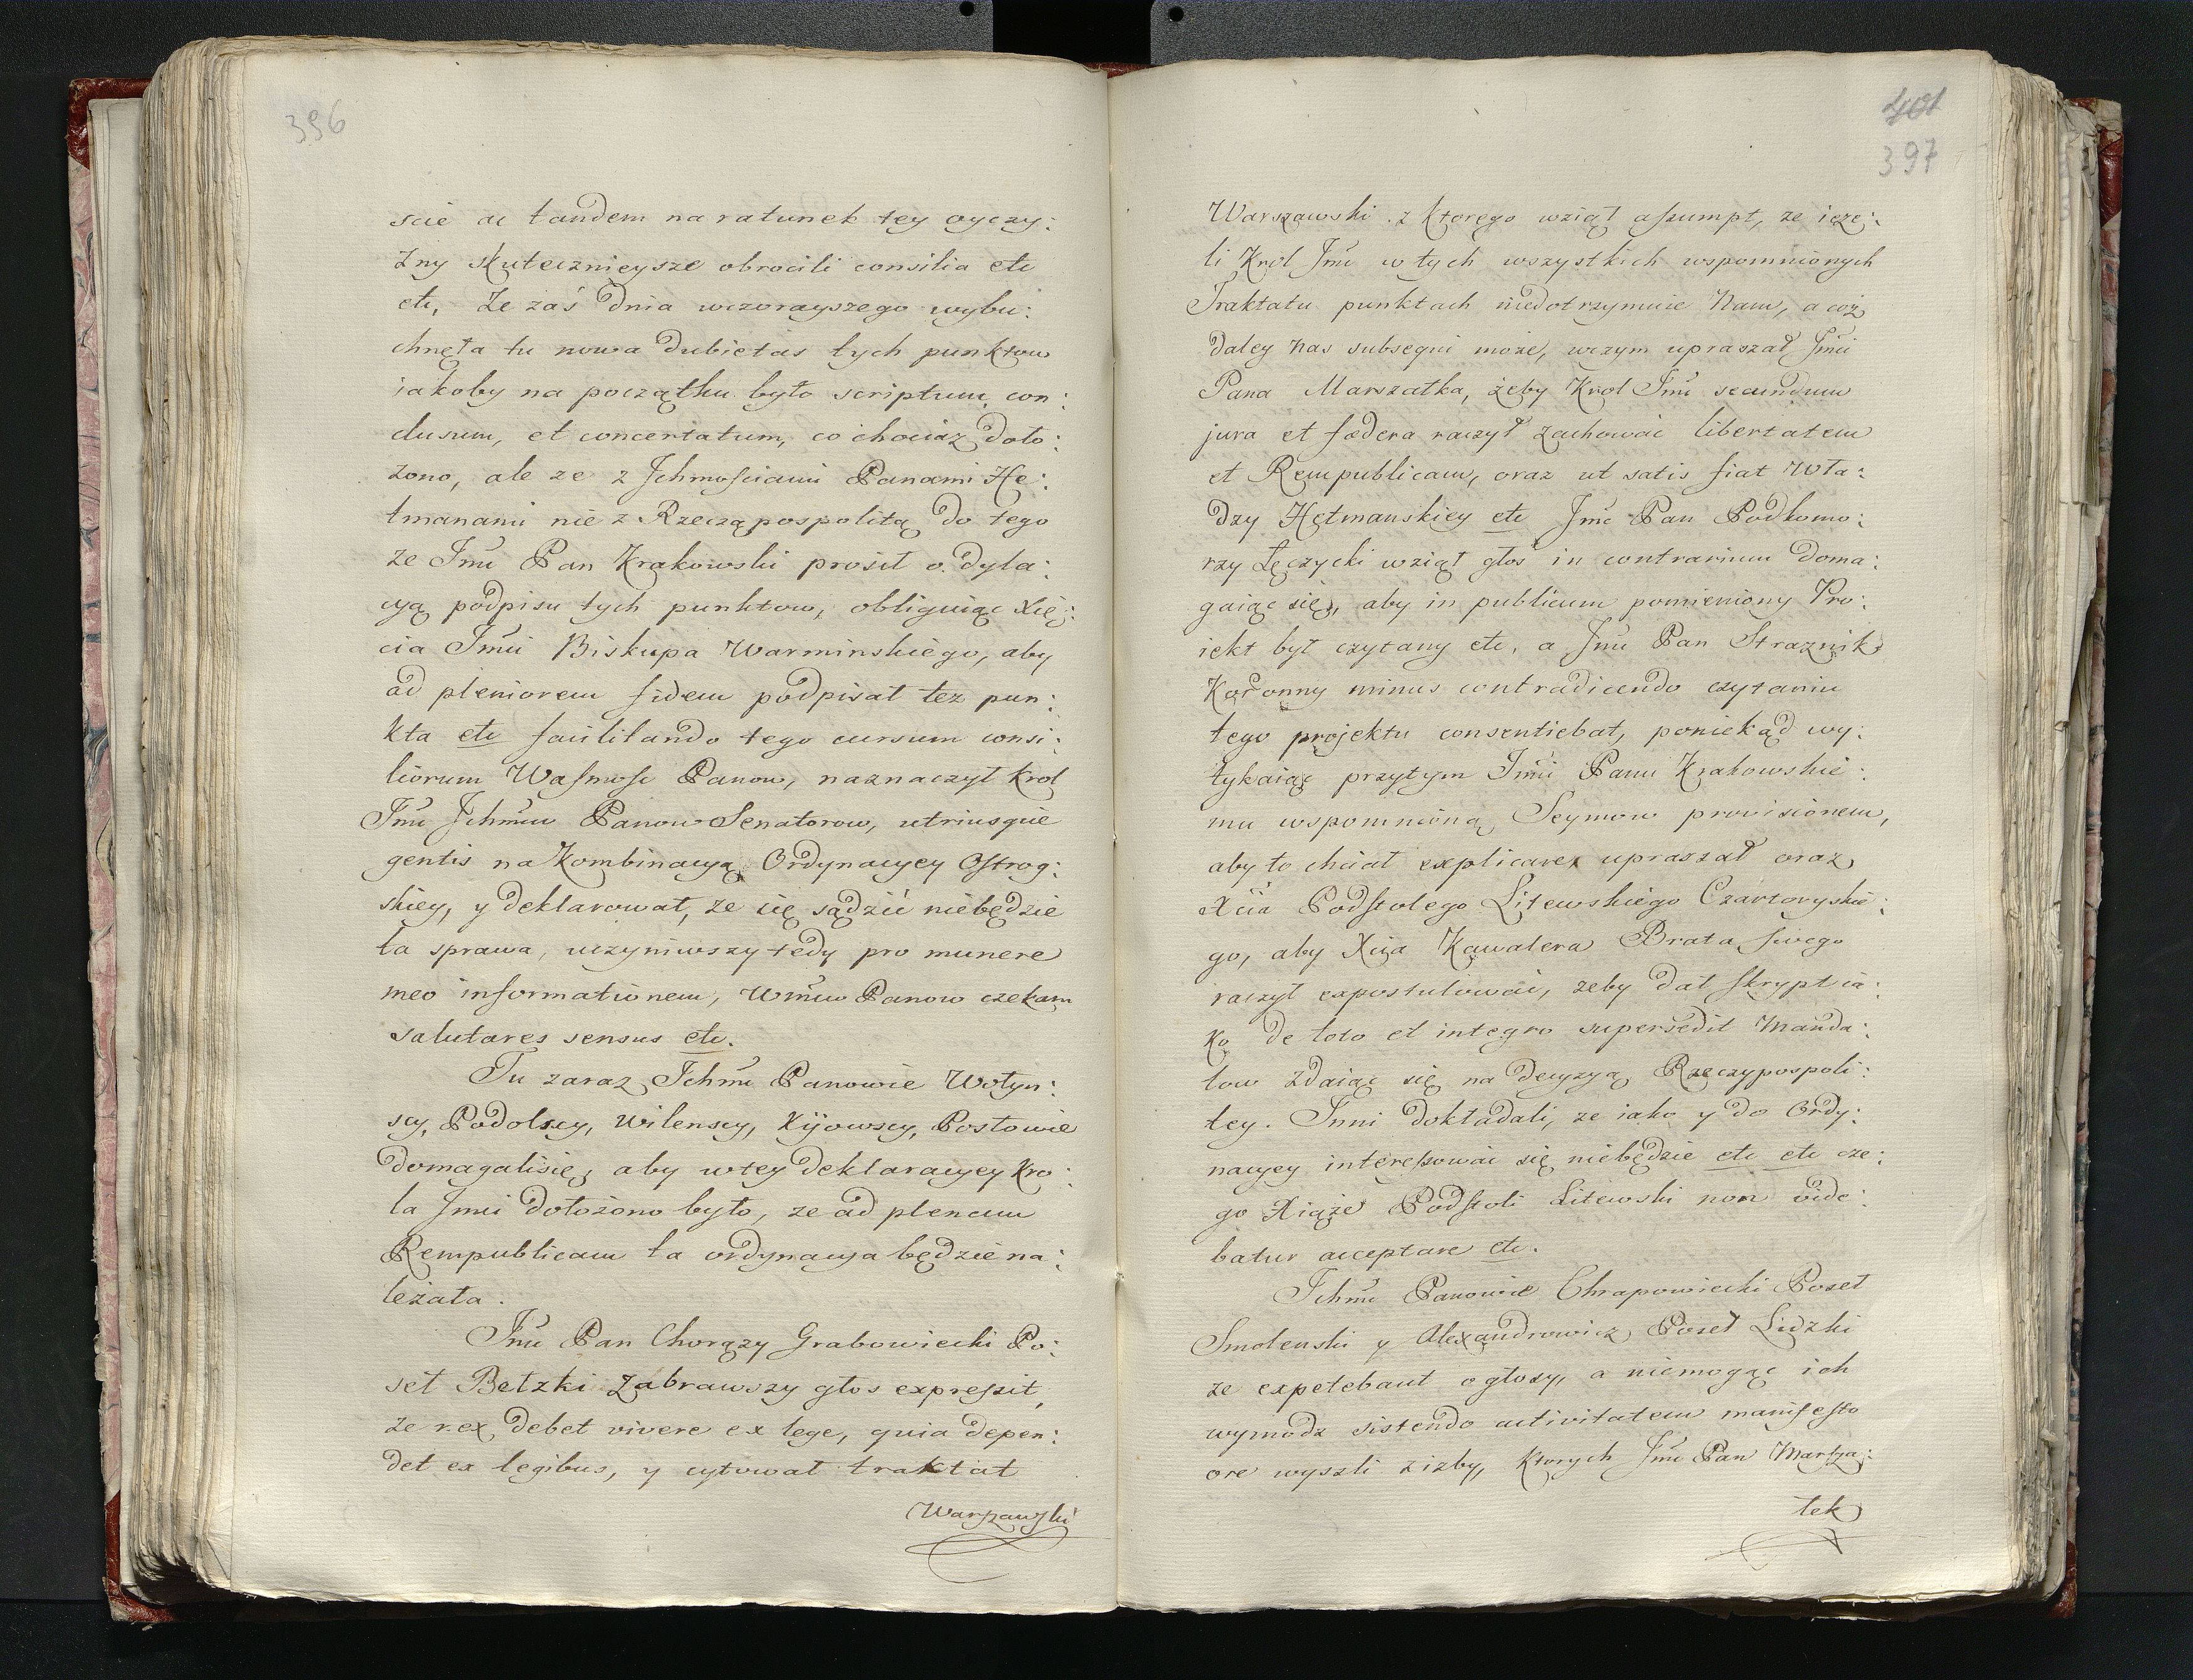 396
scie ac tandem na ratunek tey oyczy:
zny skutecznieysze obrocili consilia etc
etc, Że zaś dnia wczorayszego wybu:
chnęła tu nowa dubietas tych punktow
iakoby na początku było scriptum, con:
clusum, et concertatum, co chociaż doło:
żono, ale ze z Jchmościami Panami He:
tmanami nie z Rzecząpospolitą do tego
że Jmć Pan Krakowski prosił o dyla:
cyą podpisu tych punktow, obliguiąc Xię:
cia Jmći Biskupa Warminskiego, aby
ad pleniorem fidem podpisał tez pun:
kta etc facilitando tego cursum consi:
liorum Waſmość Panow, naznaczył Krol
Jmć Jchmciow Panow Senatorow, utriusque
gentis na Kombinacyą Ordynacyey Oſtrog:
skiey, y deklarował, że się sądzić niebędzie
ta sprawa, uczyniwszy tedy pro munere
meo informationem, Wmćw Panow czekam
salutares sensus etc.
Tu zaraz Jchmć Panowie Wołyn:
scy, Podolscy, Wilenscy, Kijowscy, Posłowie
domagalisię, aby wtey deklaracyey Kro:
la Jmći dołożono było, ze ad plenam
Rempublicam ta ordynacya będzie na:
leżała.
Jmć Pan Chorąży Grabowiecki Po:
seł Bełzki zabrawszy głos expreſsit,
że rex debet vivere ex lege, quia depen:
det ex legibus, y cytował traktat
Warszawſki
401
397
Warszawski z ktorego wziął aſsumpt, ze ieże:
li Krol Jmć w tych wszystkich wspomnionych
Traktatu punktach niedotrzymuie Nam, a coż
daley nas subsequi może, wczym upraszał Jmći
Pana Marszałka, żeby Krol Jmć secundum
jura et fœdera raczył zachować libertatem
et Rempublicam, oraz ut satis fiat Wła:
dzy Hetmanskiey etc Jmć Pan Podkomo:
rzy Łęczycki wziął głos in contrarium doma:
gaiąc się, aby in publicum pomieniony Pro:
iekt był czytany etc, a Jmć Pan Straznik
Koronny minus contradicendo czytaniu
tego projektu consentiebat, poniekąd wy:
tykaiąc przytym Jmći Panu Krakowskie:
mu wspomnioną Seymow provisionem,
aby to chciał explicare, upraszał oraz
Xcia Podſtolego Litewskiego Czartoryskie:
go, aby Xcia Kawalera Brata ſwego
raczył expostulować, zeby dał ſkrypt ia:
ko de toto et integro supersedit Manda:
tow zdaiąc się na decyzyą Rzeczypospoli:
tey. Inni dokładali, ze iako y do Ordy:
nacyey intereſsować się niebędzie etc etc cze:
go Xiąże Podſtoli Litewski non vide:
batur acceptare etc.
Jchmć Panowie Chrapowicki Poseł
Smolenski y Alexandrowicz Poseł Lidzki
ze expetebant o głosy, a niemogąc ich
wymodz sistendo activitatem manifeſto
ore wyszli z izby, Ktorych Jmć Pan Marſza:
łek